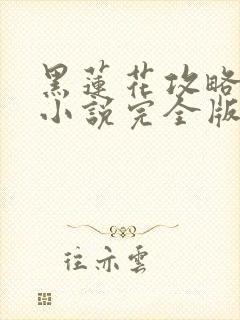 黑蓮花攻略
小說完全版
往亦雲